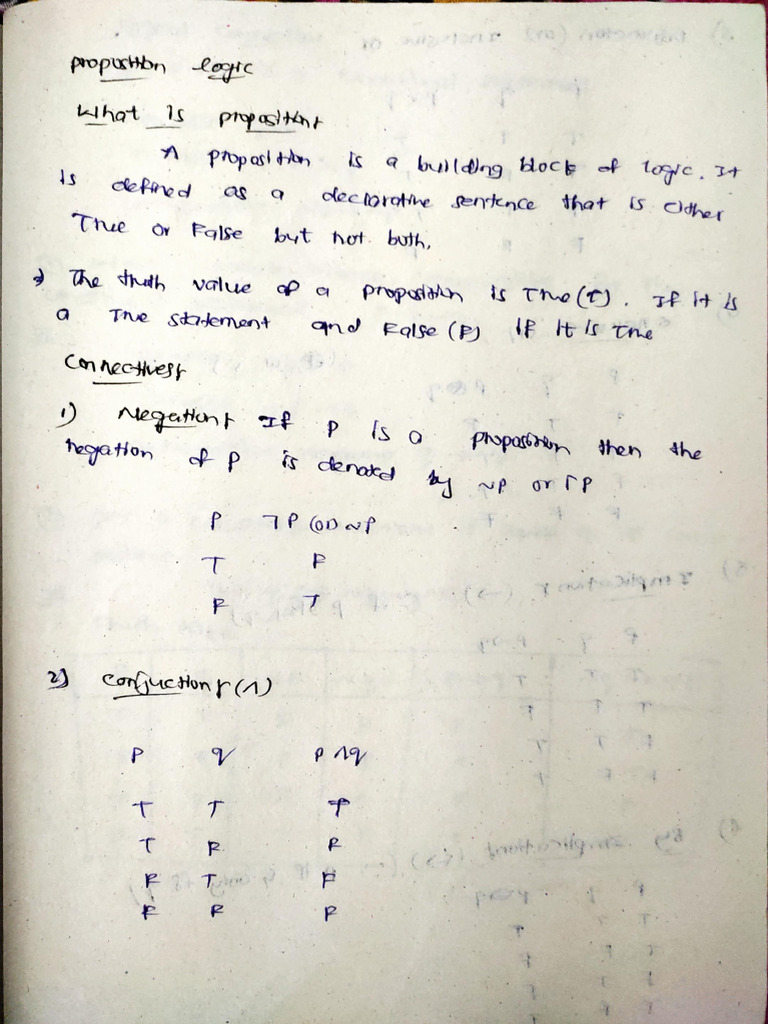 proposition logic
What is proposition:
A proposition is a building block of logic. It
is defined as a declorative sentence that is either
True or False but not both.
The truth value of a proposition is True (T). If it is
a True statement and False (F) if it is true
Connectives:
1) Negation: If P is a proposition then the
negation of P is denoted by ~P or ꓩP
P ¬P (or) ~P
T F
F T
2) Conjuction: (∧)
P q P ∧ q
T T T
T F F
F T F
F F F